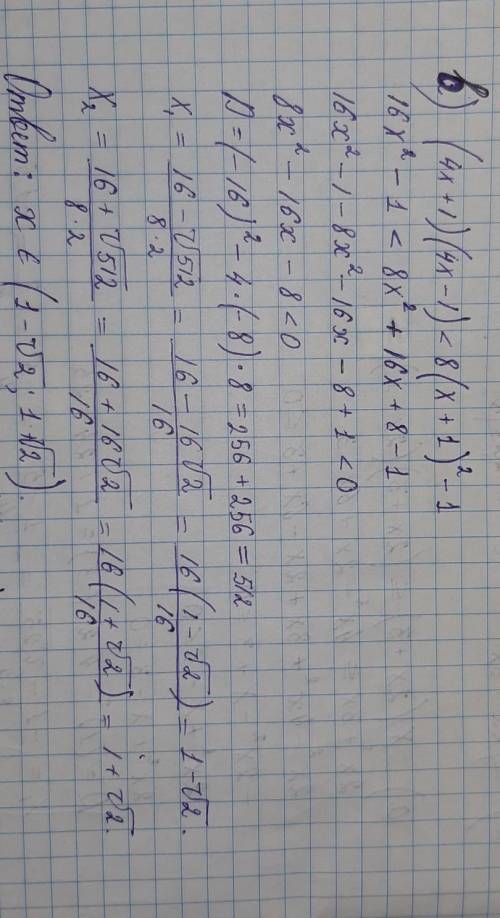 в) (4x+1)(4x-1)<8(x+1)²-1
16x²-1<8x²+16x+8-1
16x²-1-8x²-16x-8+1<0
8x²-16x-8<0
D=(-16)²-4·(-8)·8=256+256=512
x₁ = (16-√512)/(8·2) = (16-16√2)/16 = 16(1-√2)/16 = 1-√2.
x₂ = (16+√512)/(8·2) = (16+16√2)/16 = 16(1+√2)/16 = 1+√2.
Ответ: x ∈ (1-√2; 1+√2).